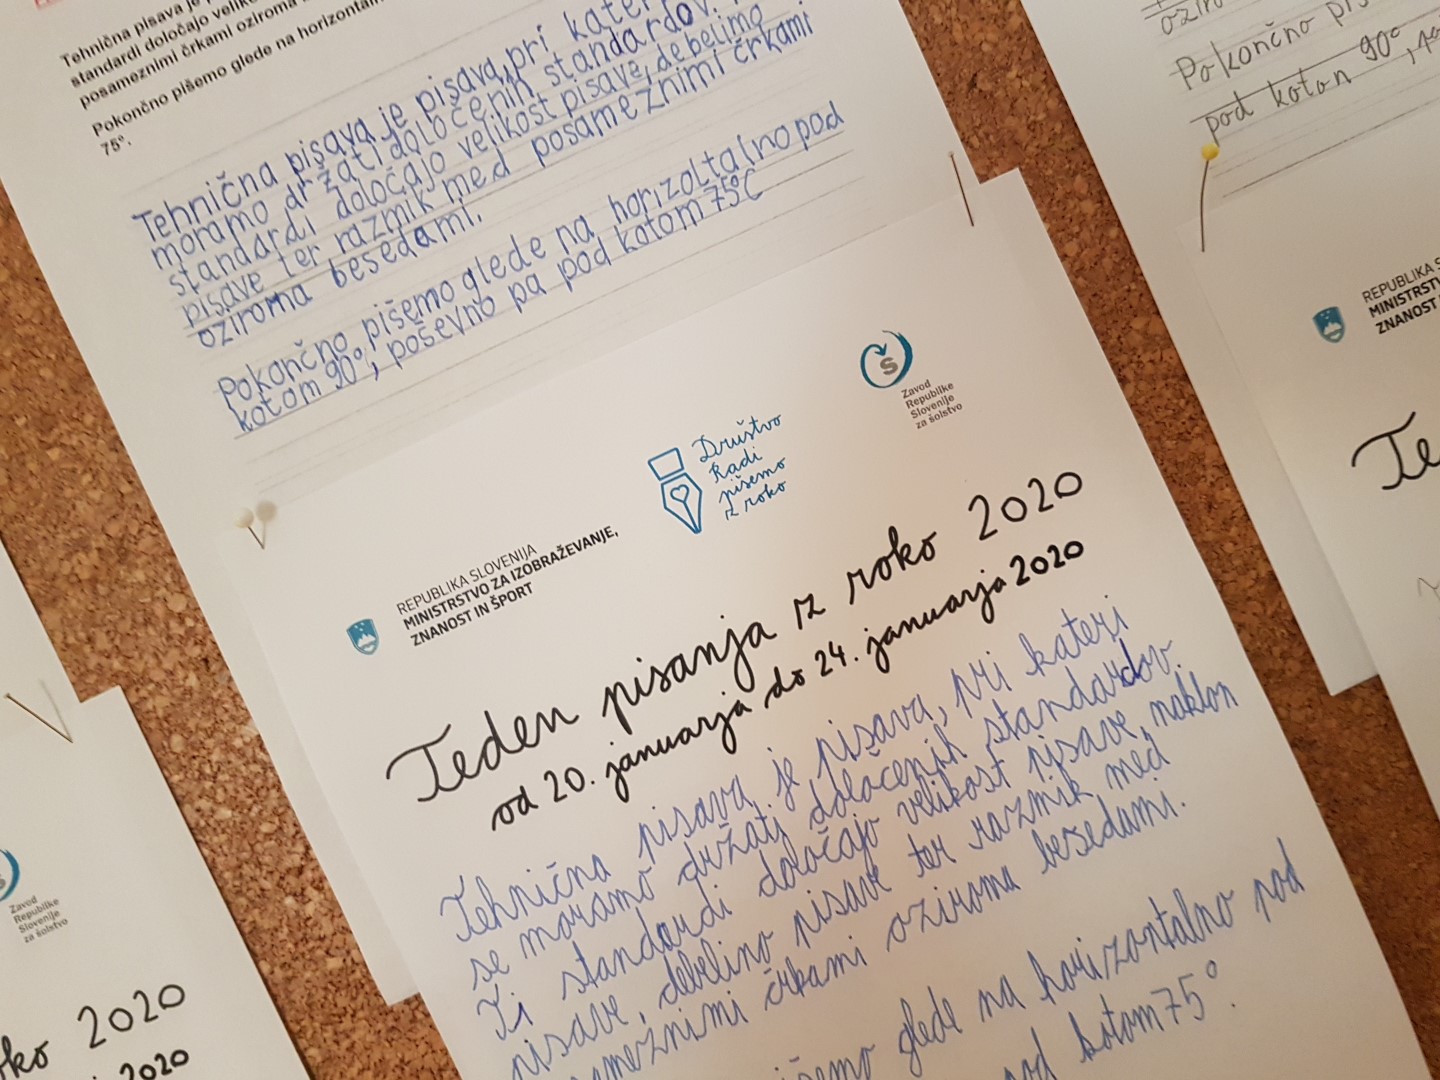 Tehnična pisava je p
standardi določajo veliko
posameznimi črkami oziroma
Pokončno pišemo glede na horizontaln
75°.
Tehnična pisava je pisava, pri kater
moramo držati določenih standardov.
standardi določajo velikost pisave, debelimo
pisave ter razmik med posameznimi črkami
oziroma besedami.
Pokončno pišemo glede na horizoltalno pod
kotom 90°, poševno pa pod kotom 75°C
oziro
Pokončno pis
pod koton 90°, po
REPUBLIKA SLOVENIJA
MINISTRSTVO ZA IZOBRAŽEVANJE,
ZNANOST IN ŠPORT
Društvo
Radi
pišemo
z roko
Š
Zavod
Republike
Slovenije
za šolstvo
Teden pisanja z roko 2020
od 20. januarja do 24. januarja 2020
Tehnična pisava je pisava, pri kateri
se moramo držati določenih standardov.
Ti standardi določajo velikost pisave, naklon
pisave, debelino pisave ter razmik med
semeznimi črkami oziroma besedami.
išemo glede na horizontalno pod
pod kotom 75°.
REPUBLIKA S
MINISTRST
ZNANOST
Te
Zavod
Republike
Slovenije
za šolstvo
oko 2020
2020